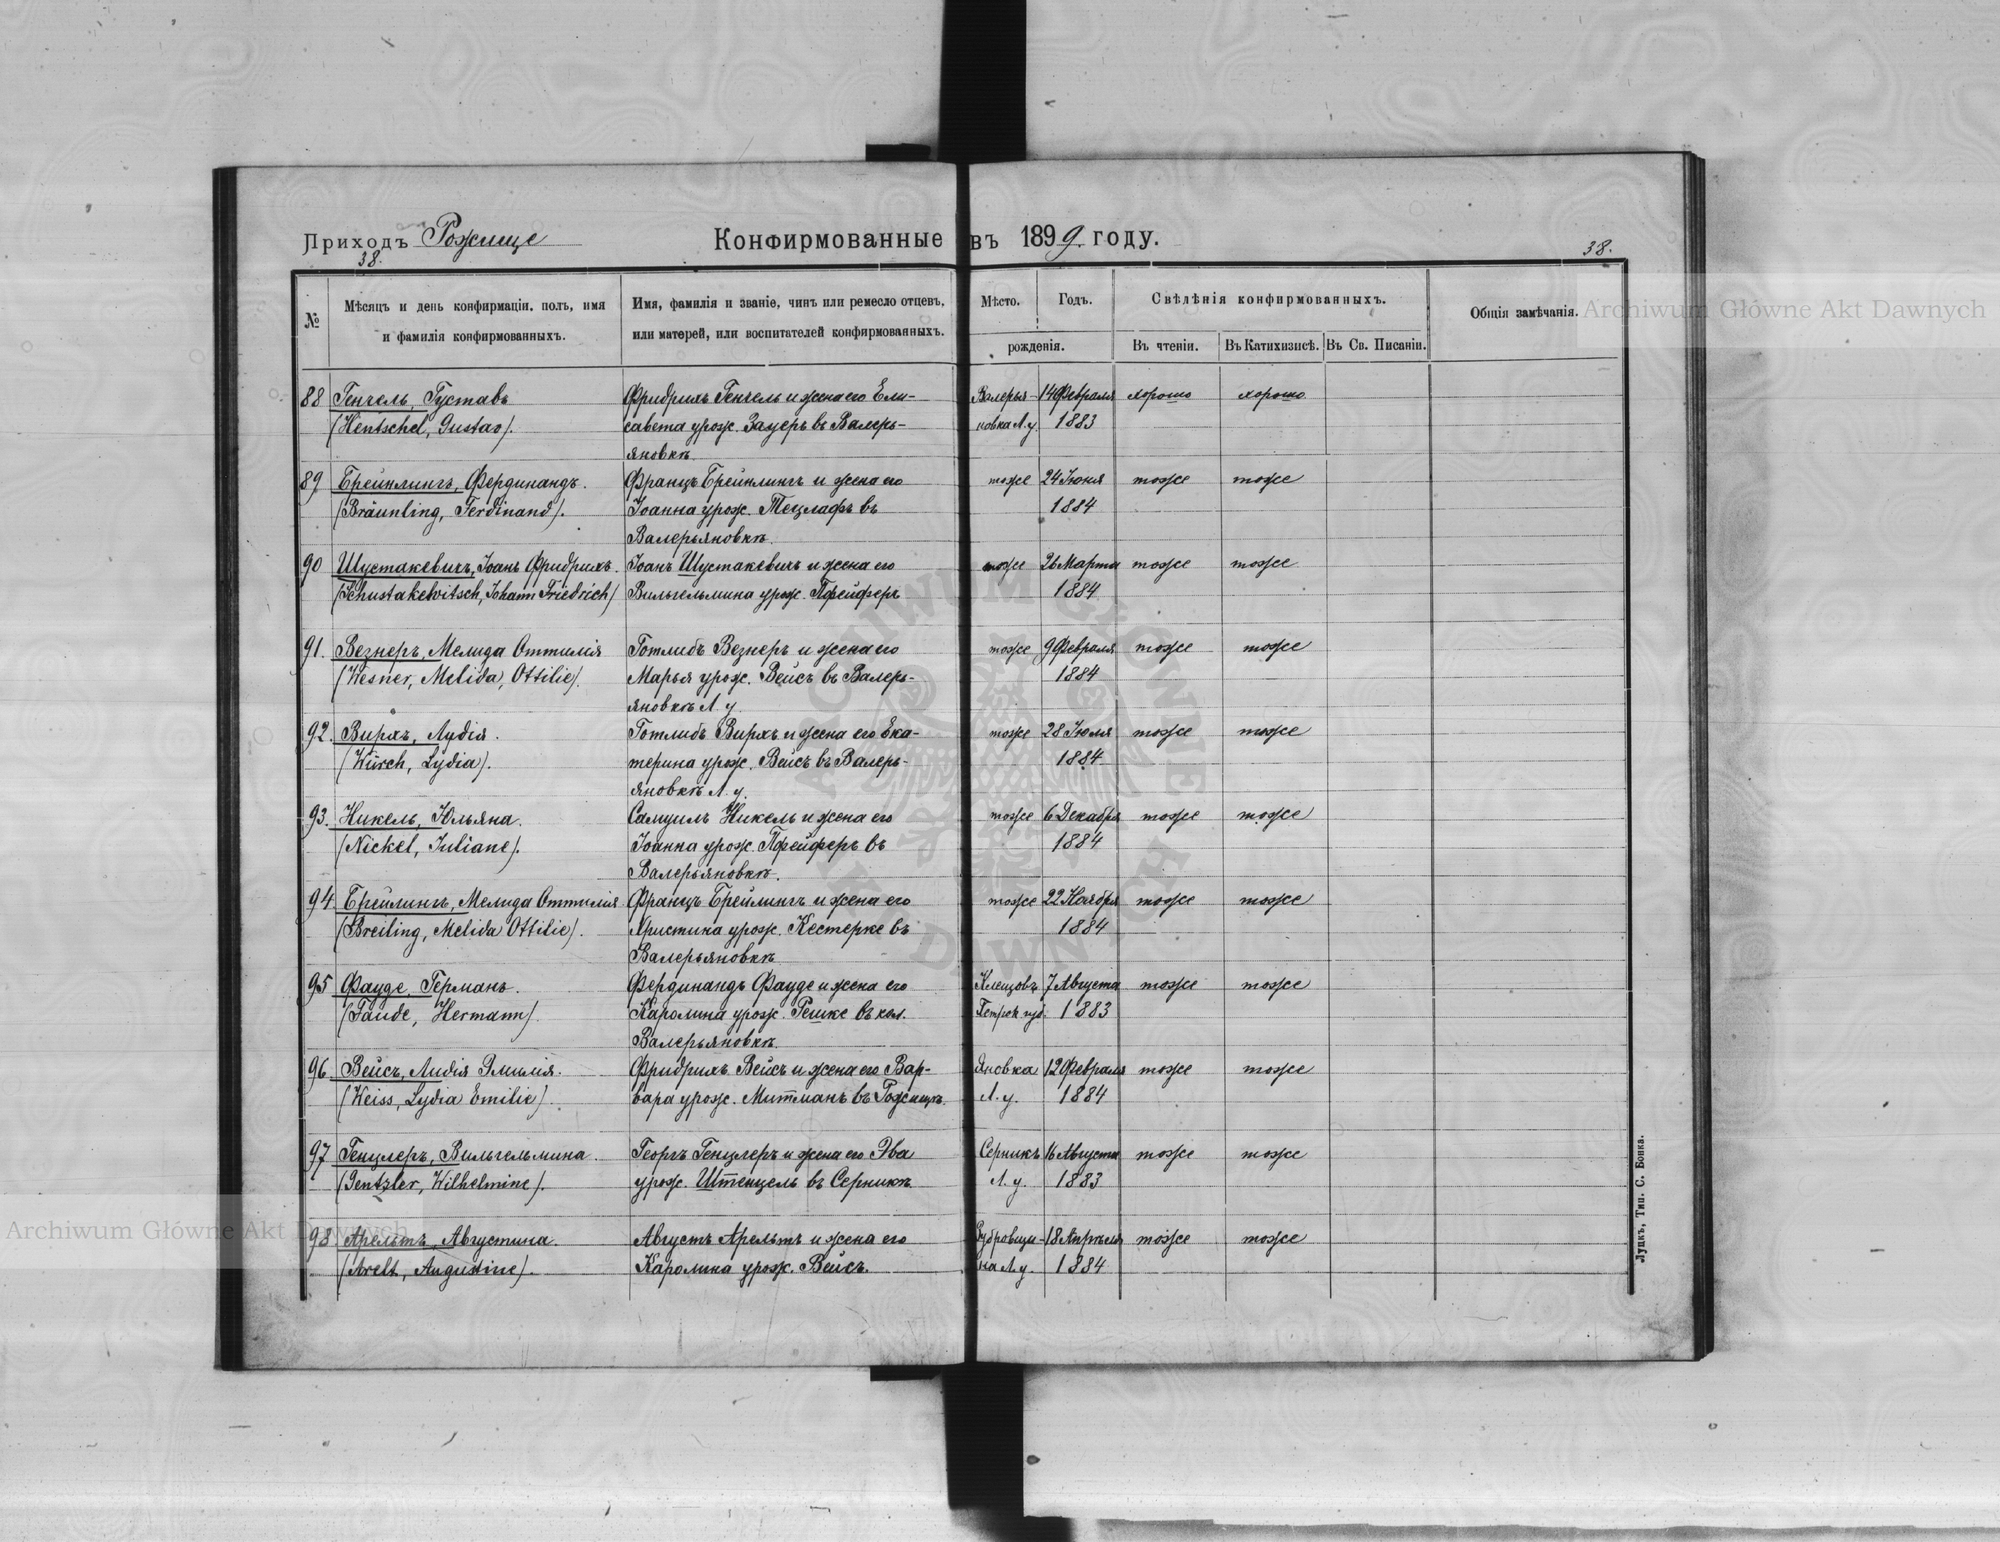 Приходъ Рожище
Конфирмованные въ 1899 году.
38.
38.
№
Мѣсяцъ и день конфирмаціи, полъ, имя
и фамилія конфирмованныхъ.
Имя, фамилія и званіе, чинъ или ремесло отцевъ,
или матерей, или воспитателей конфирмованныхъ.
Мѣсто.
Годъ.
рожденія.
Свѣдѣнія конфирмованныхъ.
Въ чтеніи.
Въ Катихизисѣ.
Въ Св. Писаніи.
Общія замѣчанія.
88 Генчель, Густавъ Фридрихъ Генчель и жена его Ели- Валерья- 14 Февраля хорошо хорошо
(Hentschel, Gustav). савета урож. Зауеръ въ Валерь- новка Л.у. 1883
яновкѣ
89 Брейнлингъ, Фердинандъ. Францъ Брейнлингъ и жена его тоже 24 Іюня тоже тоже
(Bräunling, Ferdinand). Іоанна урож. Тецлафъ въ 1884
Валерьяновкѣ.
90 Шустакевичъ, Іоанъ Фридрихъ. Іоанъ Шустакевичъ и жена его тоже 26 Марта тоже тоже
(Schustakewitsch, Johann Friedrich) Вильгельмина урож. Пфейферъ 1884
91. Везнеръ, Мелида Оттилія Готлибъ Везнеръ и жена его тоже 9 Февраля тоже тоже
(Wesner, Melida, Ottilie). Марья урож. Вейсъ въ Валерь- 1884
яновкѣ Л. у.
92. Вирхъ, Лудія. Готлибъ Вирхъ и жена его Ека- тоже 28 Іюля тоже тоже
(Würch, Lydia). терина урож. Вейсъ въ Валерь- 1884
яновкѣ Л. у.
93. Никель, Юльяна. Самуилъ Никель и жена его тоже 6 Декабря тоже тоже
(Nickel, Juliane). Іоанна урож. Пфейферъ въ 1884
Валерьяновкѣ.
94 Брейлингъ, Мелида Оттилія Францъ Брейлингъ и жена его тоже 22 Ноября тоже тоже
(Breiling, Melida Ottilie). Христина урож. Кестерке въ 1884
Валерьяновкѣ
95 Фауде, Германъ. Фердинандъ Фауде и жена его Клещовъ 7 Августа тоже тоже
(Faude, Hermann). Каролина урож. Решке въ кол. Петрок. губ. 1883
Валерьяновкѣ
96. Вейсъ, Лидія Эмилія. Фридрихъ Вейсъ и жена его Вар- Яновка 12 Февраля тоже тоже
(Weiss, Lydia Emilie). вара урож. Митманъ въ Рожищѣ. Л. у. 1884
97 Генцлеръ, Вильгельмина. Георгъ Генцлеръ и жена его Эва Серникъ 16 Августа тоже тоже
(Gentzler, Wilhelmine). урож. Штенцель въ Серникѣ Л. у. 1883
98 Арельтъ, Августина. Августъ Арельтъ и жена его Зубровщи- 18 Апрѣля тоже тоже
(Arelt, Augustine). Каролина урож. Вейсъ. на Л.у. 1884
Луцкъ, Тип. С. Бонка.
Archiwum Główne Akt Dawnych
Archiwum Główne Akt Dawnych
ARCHIWUM GŁÓWNE AKT DAWNYCH